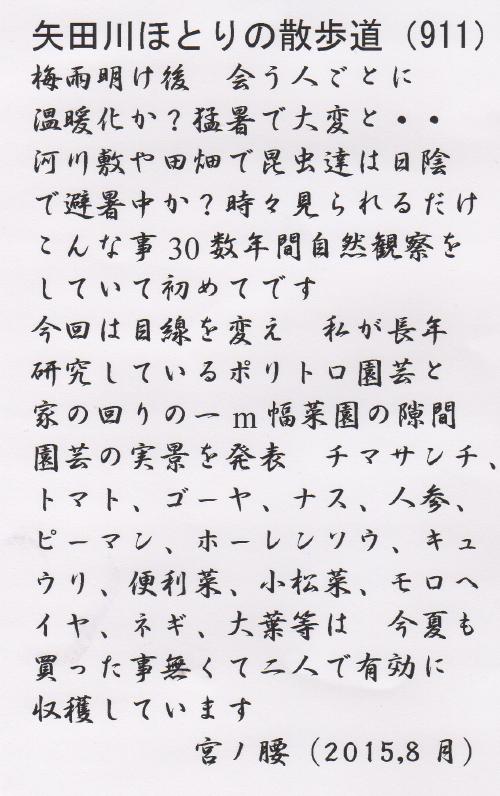 矢田川ほとりの散歩道（911）
梅雨明け後　会う人ごとに
温暖化か？猛暑で大変と・・
河川敷や田畑で昆虫達は日陰
で避暑中か？時々見られるだけ
こんな事30数年間自然観察を
していて初めてです
今回は目線を変え　私が長年
研究しているポリトロ園芸と
家の回りの一m幅菜園の隙間
園芸の実景を発表　チマサンチ、
トマト、ゴーヤ、ナス、人参、
ピーマン、ホーレンソウ、キュ
ウリ、便利菜、小松菜、モロヘ
イヤ、ネギ、大葉等は　今夏も
買った事無くて二人で有効に
収穫しています
宮ノ腰（2015,8月）